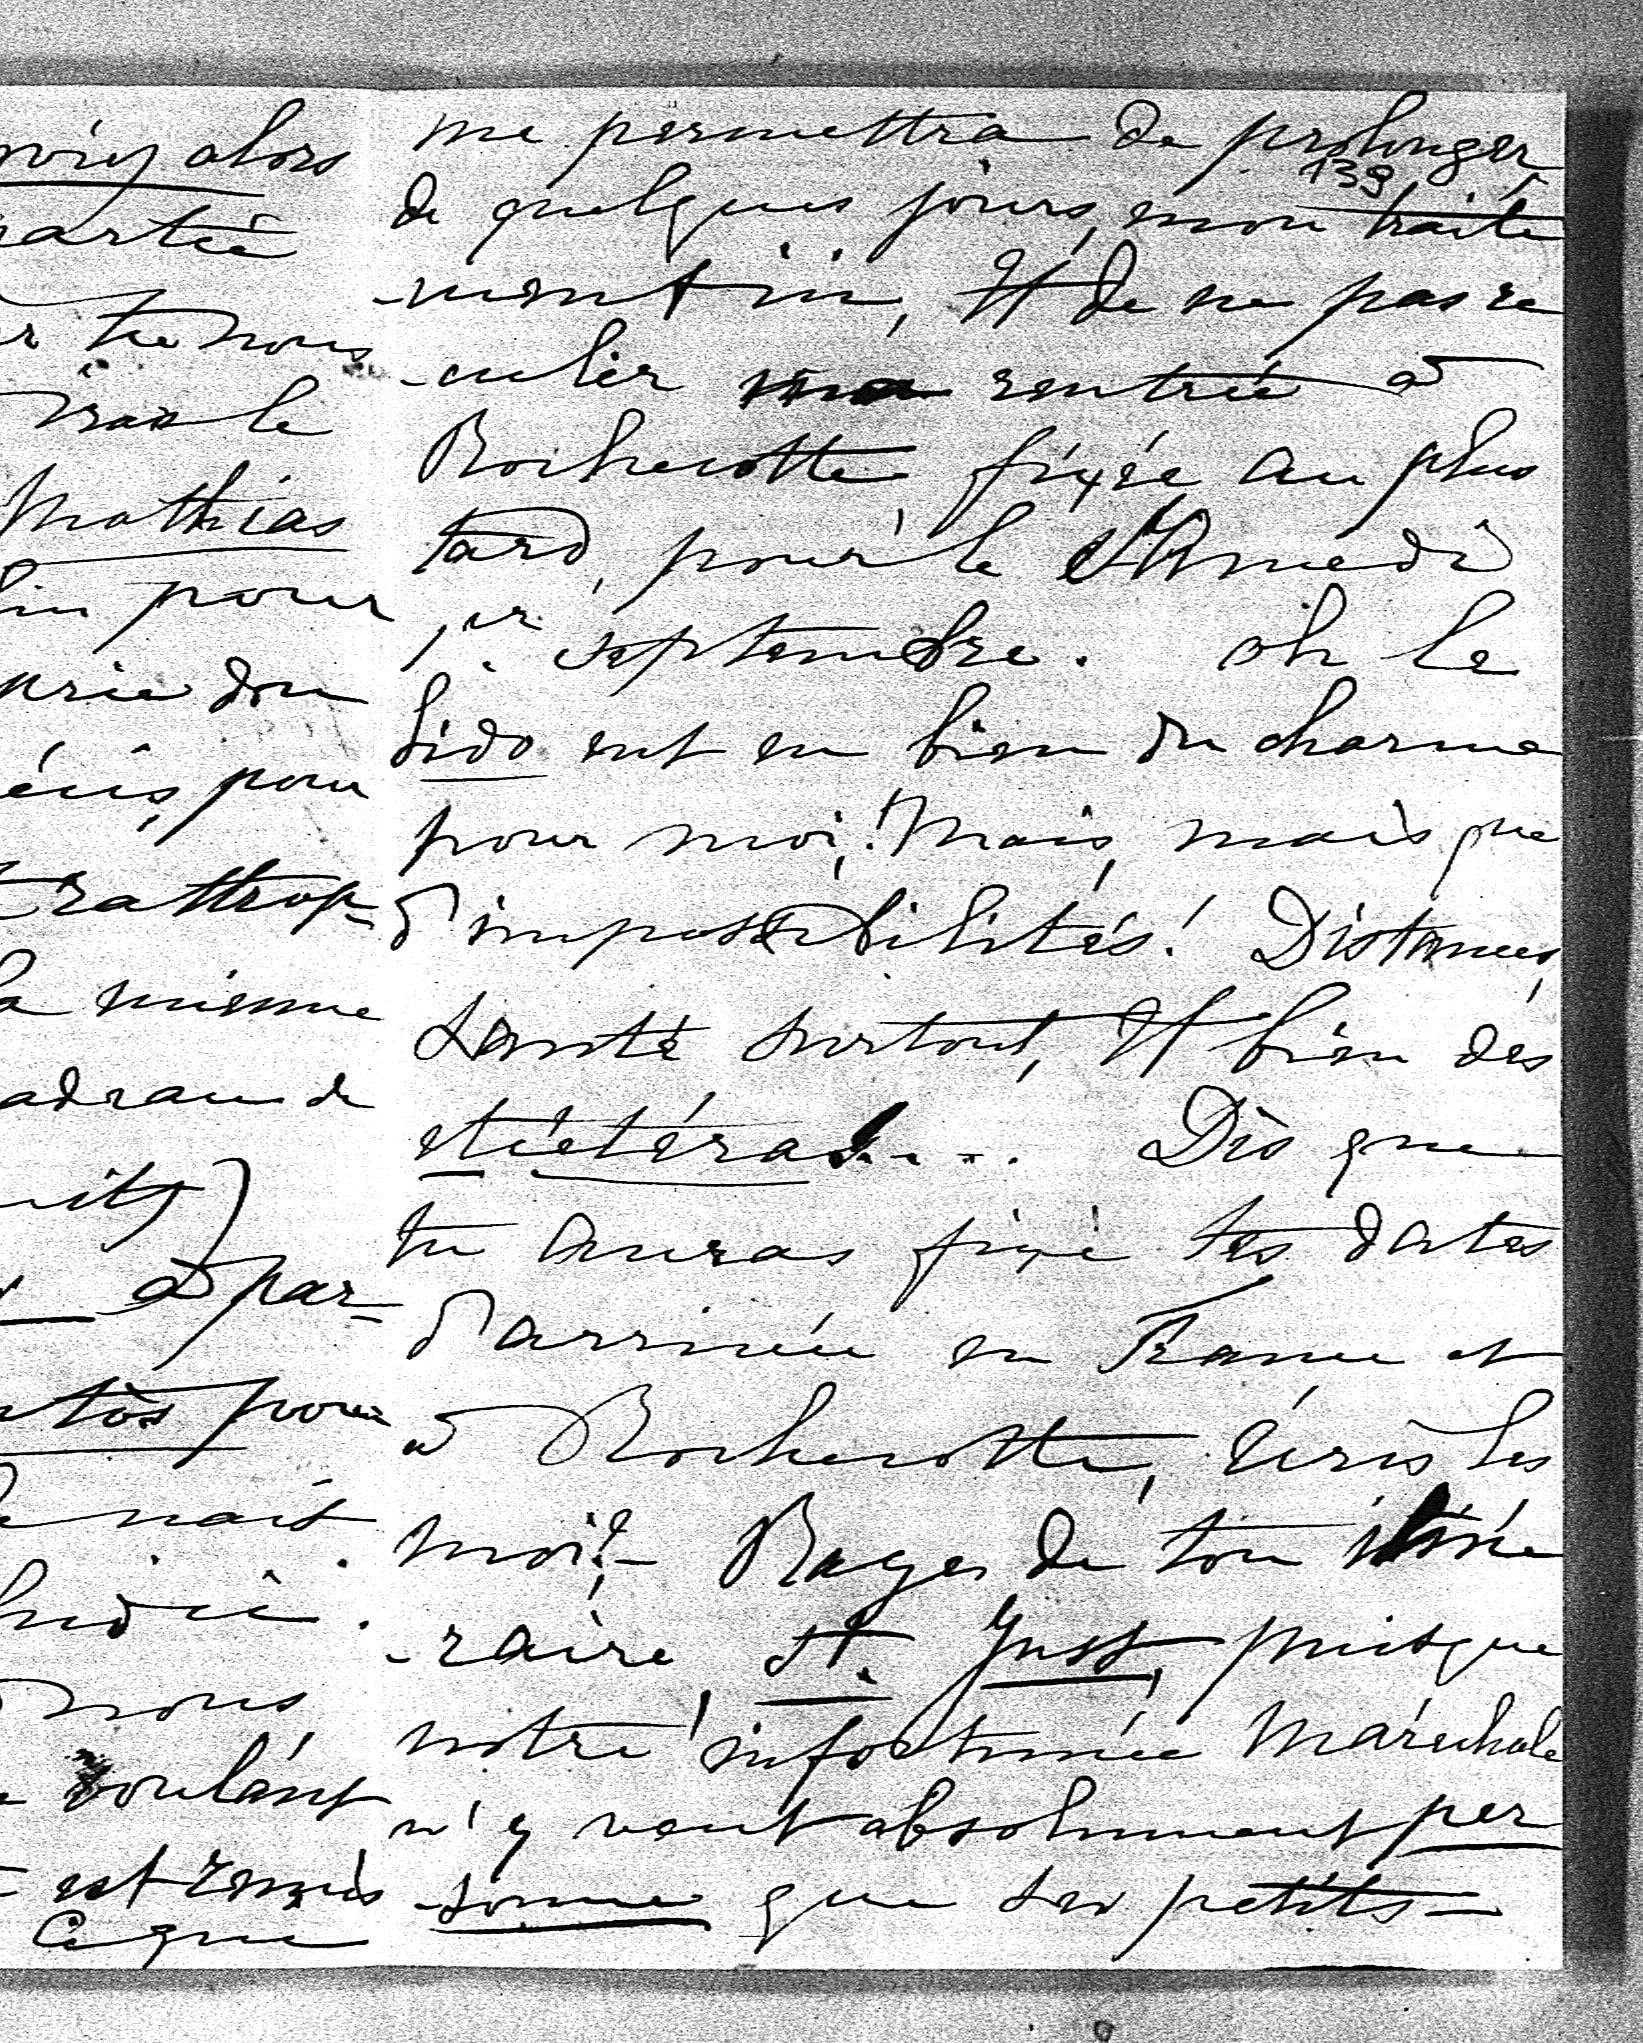 alors
partie
tu nous
Mathias
pour
pour
rattrap-
la mienne
de
à par-
pour
nait
nous
voulant
est remis
Ce qui
me permettra de prolonger
139
de quelques jours, mon traite
-ment ici, et de ne pas re
-culer ma rentrée à
Rochecotte fixée au plus
tard, pour le samedi
1er septembre. Oh le
Lido eut eu bien du charme
pour moi! Mais, mais que
d'impossibilités! Distances,
santé surtout, et bien des
etcétéras.... Dès que
tu auras fixé tes dates
d'arrivée en France et
à Rochecotte, écris les
moi! - Rayes de ton itiné
-raire St. Just, puisque
notre infortunée Maréchale
n'y veut absolument per
-sonne que ses petits-